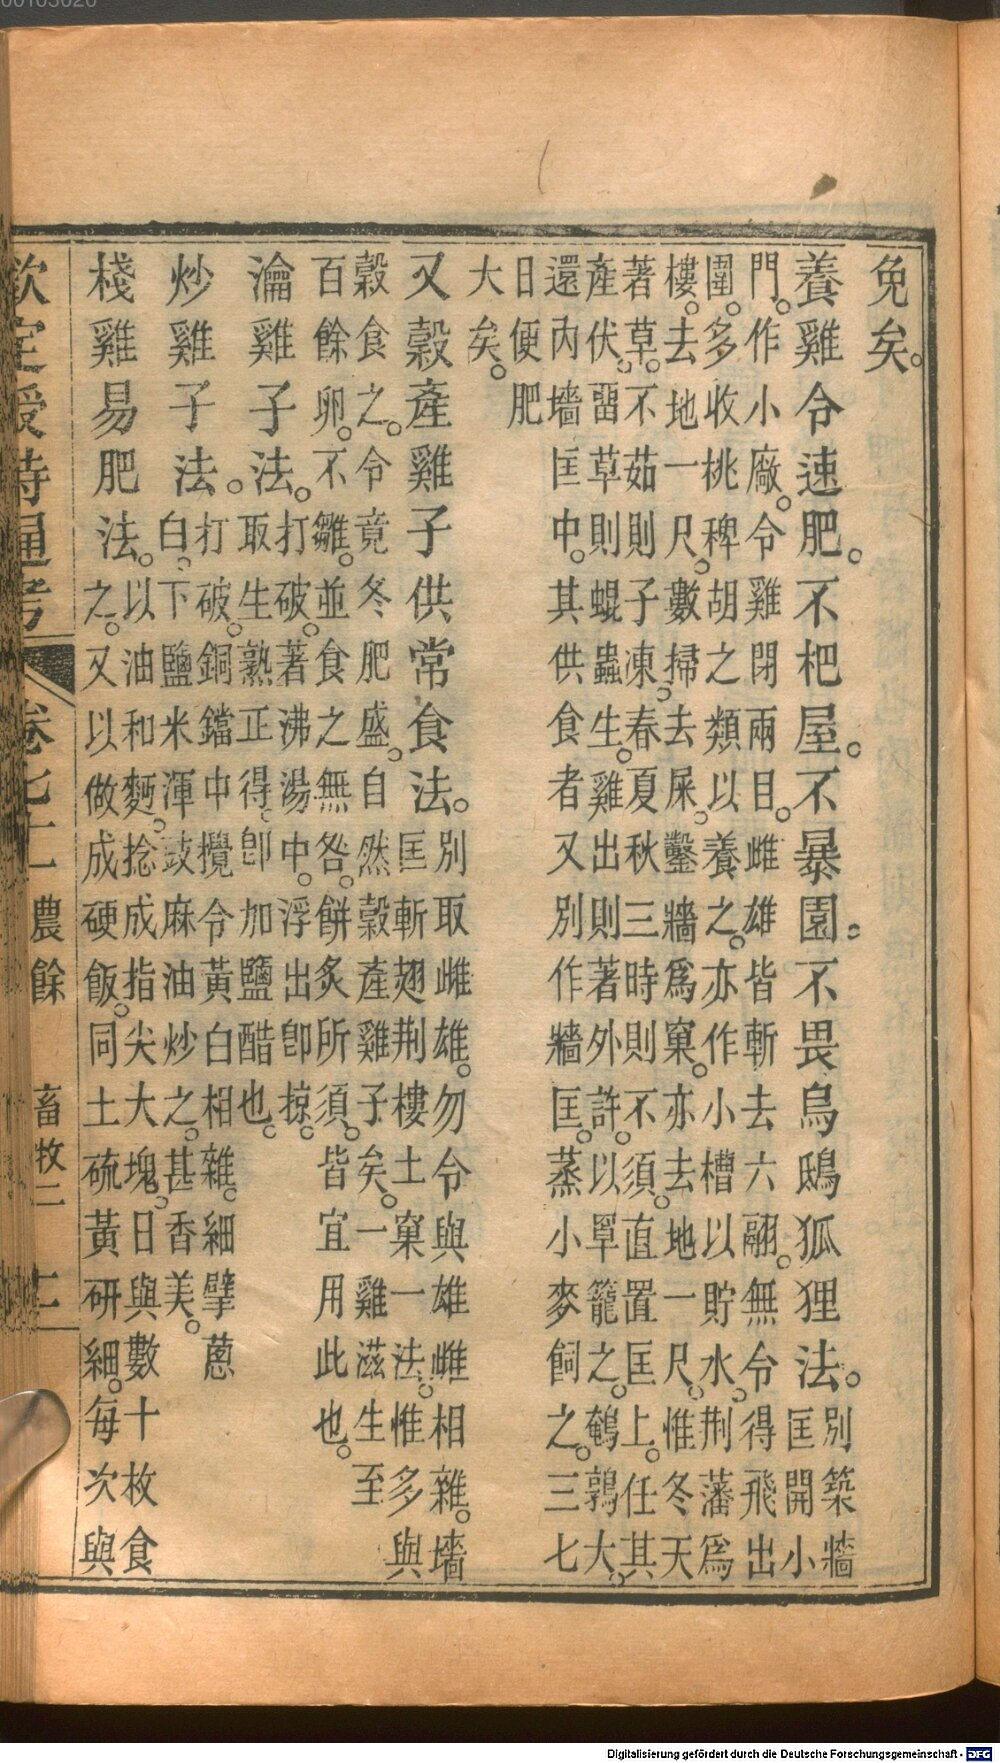 免矣。
養雞令速肥。不杷屋。不暴園。不畏烏鴟狐狸法。別築牆
匡開小
門。作小廠。令雞閉兩目。雌雄皆斬去六翮。無令得飛出
圍。多收桃稗胡之類以養之。亦作小槽以貯水。荆藩爲
樓。去地一尺。數掃去屎。鑿牆爲窠。亦去地一尺。惟冬天
著草。不茹則子凍。春夏秋三時則不須。直置匡上。任其
產伏。畱草則蜫蟲生。雞出則著外許。以罩籠之。鵪鶉大。
還內墻匡中。其供食者又別作牆匡。蒸小麥飼之。三七
日便肥
大矣。
又穀產雞子供常食法。別取雌雄。勿令與雄雌相雜。墻
匡斬翅荆樓土窠一法。惟多與
穀食之。令竟冬肥盛。自然穀產雞子矣。一雞滋生至
百餘卵。不雛。並食之無咎。餅炙所須。皆宜用此也。
瀹雞子法。打破。著沸湯中。浮出卽掠。
取生熟正得。卽加鹽醋也。
炒雞子法。打破。銅鐺中攪令黃白相雜。細擘蔥
白。下鹽米渾豉麻油炒之。甚香美。
棧雞易肥法。以油和麪。捻成指尖大塊。日與數十枚食
之。又以做成硬飯。同土硫黃研細。每次與
欽定授時通考 卷七十二 農餘 畜牧二 三
00103020
Digitalisierung gefördert durch die Deutsche Forschungsgemeinschaft - DFG